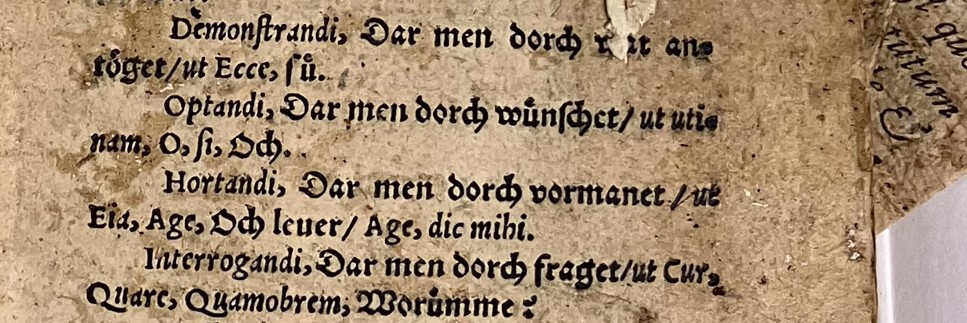 Demonstrandi, Dar men dorch an⸗
töget/ ut Ecce, süͤ.
Optandi, Dar men dorch wuͤnschet/ ut uti⸗
nam, O, si, Och.
Hortandi, Dar men dorch vormanet / ut
Eia, Age, Och leuer/ Age, dic mihi.
Interrogandi, Dar men dorch fraget/ ut Cur,
Quare, Quamobrem, Woruͤmme ?
qu
tutum